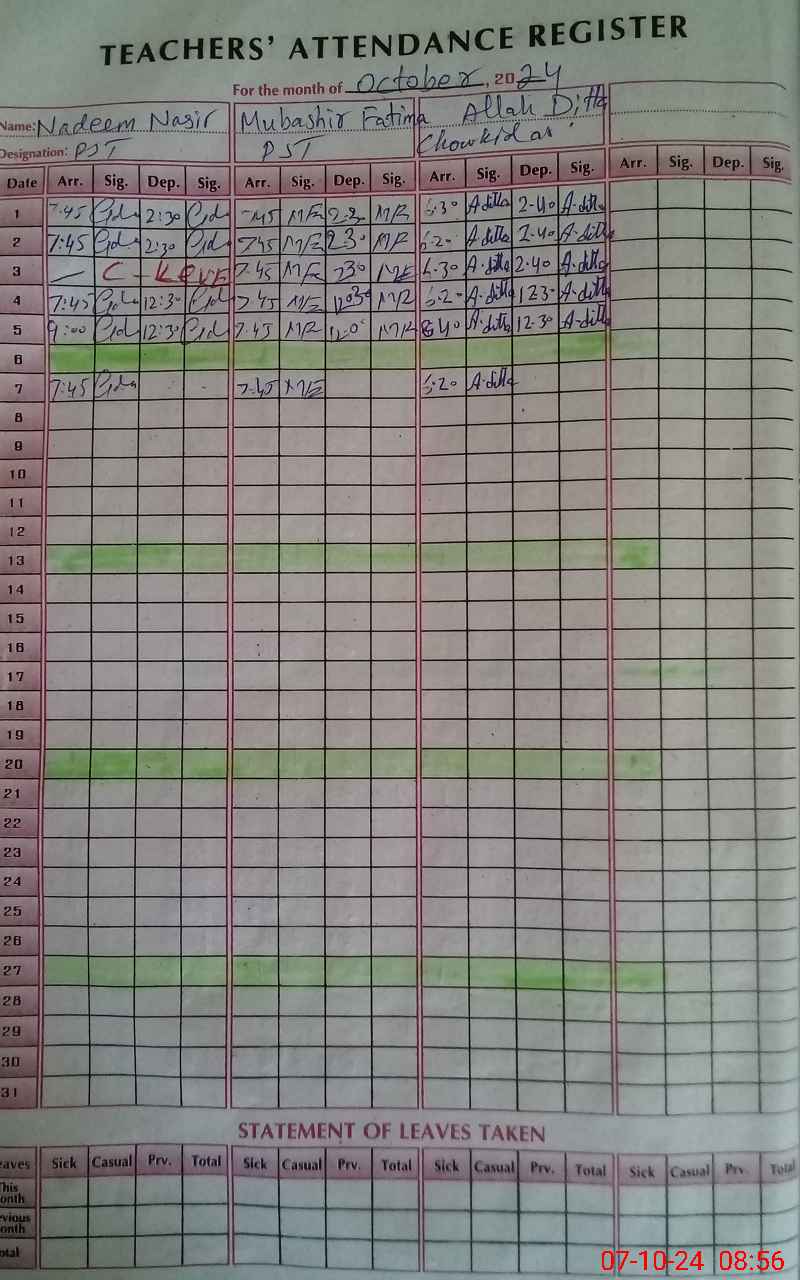 TEACHERS' ATTENDANCE REGISTER
For the month of October, 2024
Name: Nadeem Nasir Mubashir Fatima Allah Ditta
Designation: PST PST Chowkidar
Date Arr. Sig. Dep. Sig. Arr. Sig. Dep. Sig. Arr. Sig. Dep. Sig. Arr. Sig. Dep. Sig.
1 7:45 2:30 7:45 2:30 A-ditta 2-40 A-ditta
2 7:45 2:30 7:45 2:30 A-ditta 2-40 A-ditta
3 C- 7-45 230 A-ditta 2-40 A-ditta
4 7:45 12:30 7-45 A-ditta A-ditta
5 9:00 12:30 7-45 A-ditta 12-30 A-ditta
6
7 7:45 7-45 A-ditta
8
9
10
11
12
13
14
15
16
17
18
19
20
21
22
23
24
25
26
27
28
29
30
31
STATEMENT OF LEAVES TAKEN
eaves Sick Casual Prv. Total Sick Casual Prv. Total Sick Casual Prv. Total Sick Casual Prv. Total
This
onth
vious
onth
otal
07-10-24 08:56